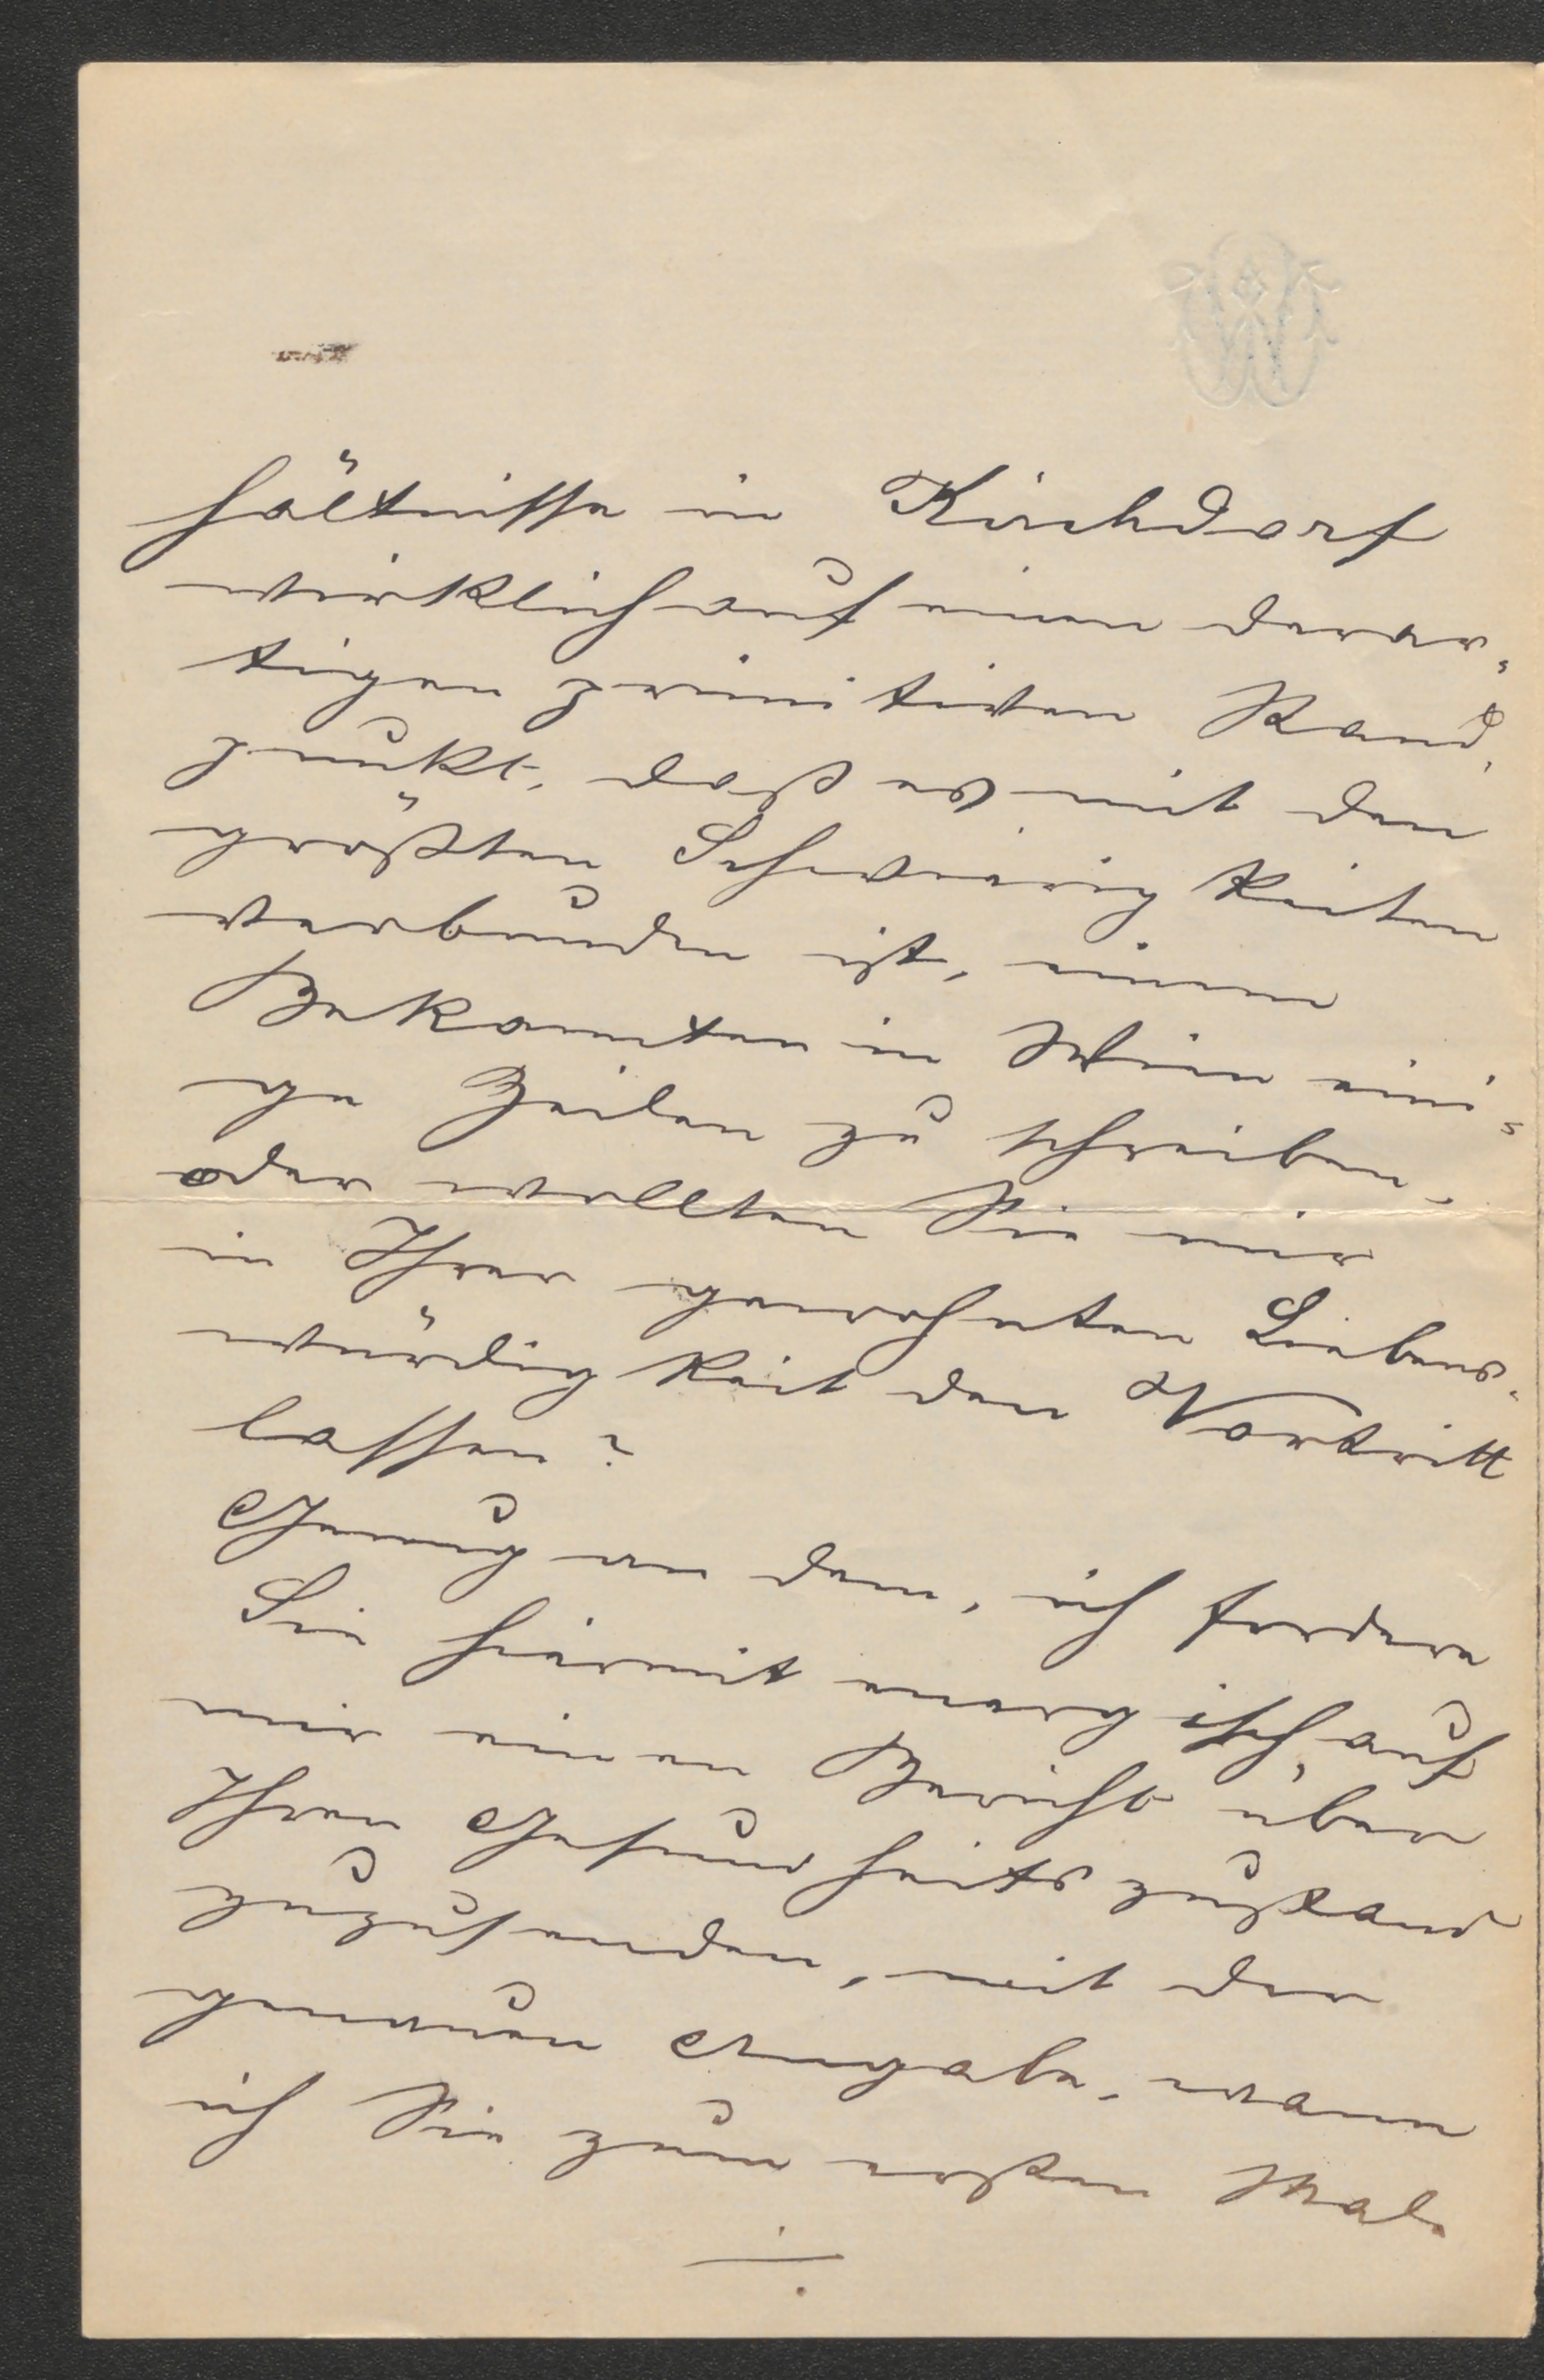 hältnisse in Kirchdorf
wirklich auf einen derar-
tigen primitiven Stand-
punkt, daß es mit den
größten Schwierigkeiten
verbunden ist, einem
Bekannten in Wien eini-
ge Zeilen zu schreiben,
oder wollten Sie mir
in Ihrer gewohnten Liebens-
würdigkeit den Vortritt
lassen?
Genug an dem, ich fordere
Sie hiermit energisch auf
mir einen Bericht über
Ihren Gesundheitszustand
zuzusenden, mit der
genauen Angabe, wann
ich Sie zum ersten Mal